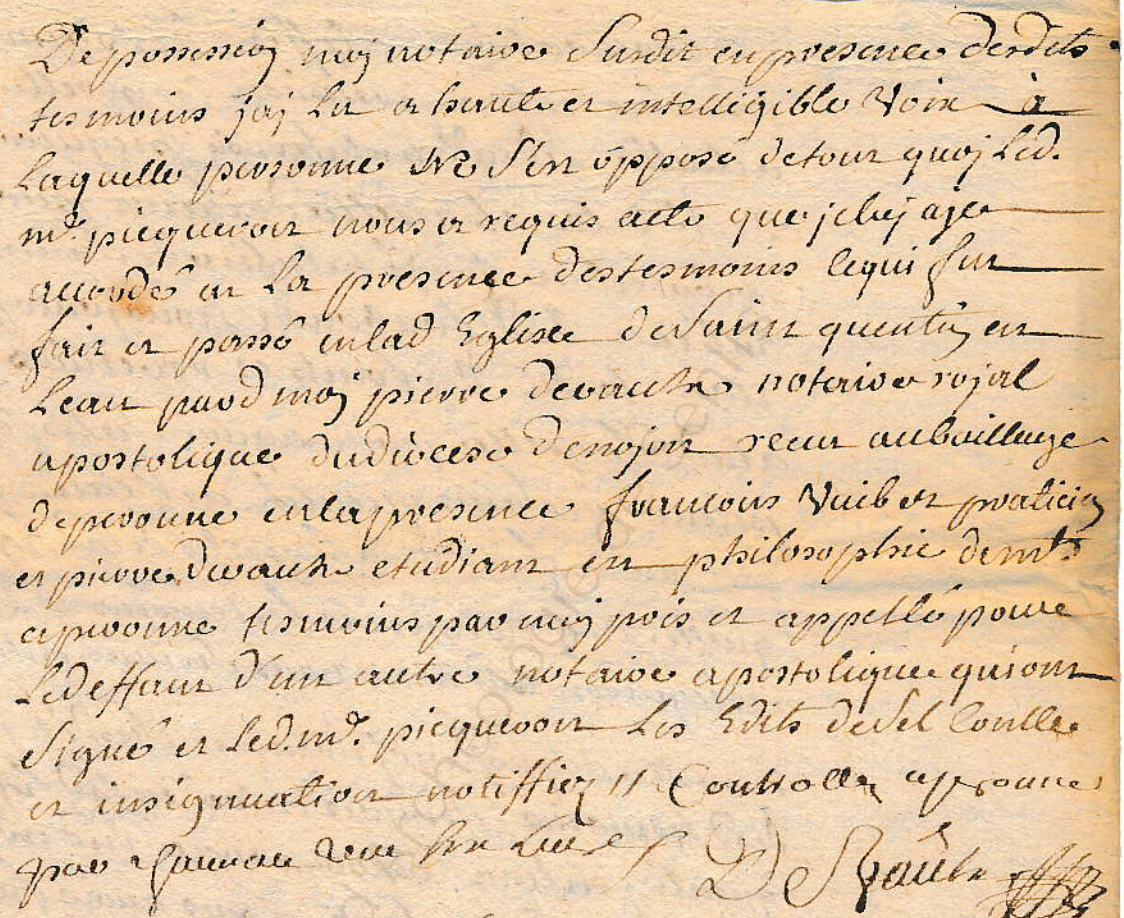 De possession moy notaire susdit en presence desdits
tesmoins jaj lu a haute et intelligible voix a
laquelle personne ne s'est opposé de tout quoj led.
mre. picquevoir nous a requis acte que je luj aje
accordé en la presence des tesmoins ce qui fut
fait et passé en lad Eglise de saint quentin en
Leau pard moj pierre devaulx notaire rojal
apostolique du diocese de nojon recut au bailliage
de peronne en la presence francois Vuibet praticien
et pierre devaulx etudiant en philosophie demts
a peronne tesmoins par moj pris et appellé pour
Le deffaut d'un autre notaire apostolique qui ont
signé et led. mre. picquevoir les Edits de sel Controlle
et insignuation notiffiez // Controllé a peronne
par